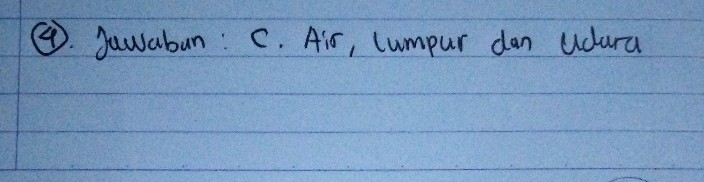 ④. Jawaban : C. Air, lumpur dan udara